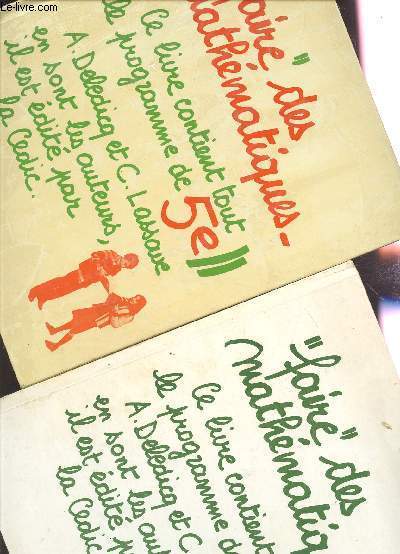 © Le-livre.com
"faire" des
mathématiques-
Ce livre contient tout
le programme de 5e
A. Deledicq et C. Lassave
en sont les auteurs,
il est édité par
la Cedic.
"faire" des
mathématiq
Ce livre contient
le programme d
A. Deledicq et C
en sont les aut
il est édité p
la Cedic